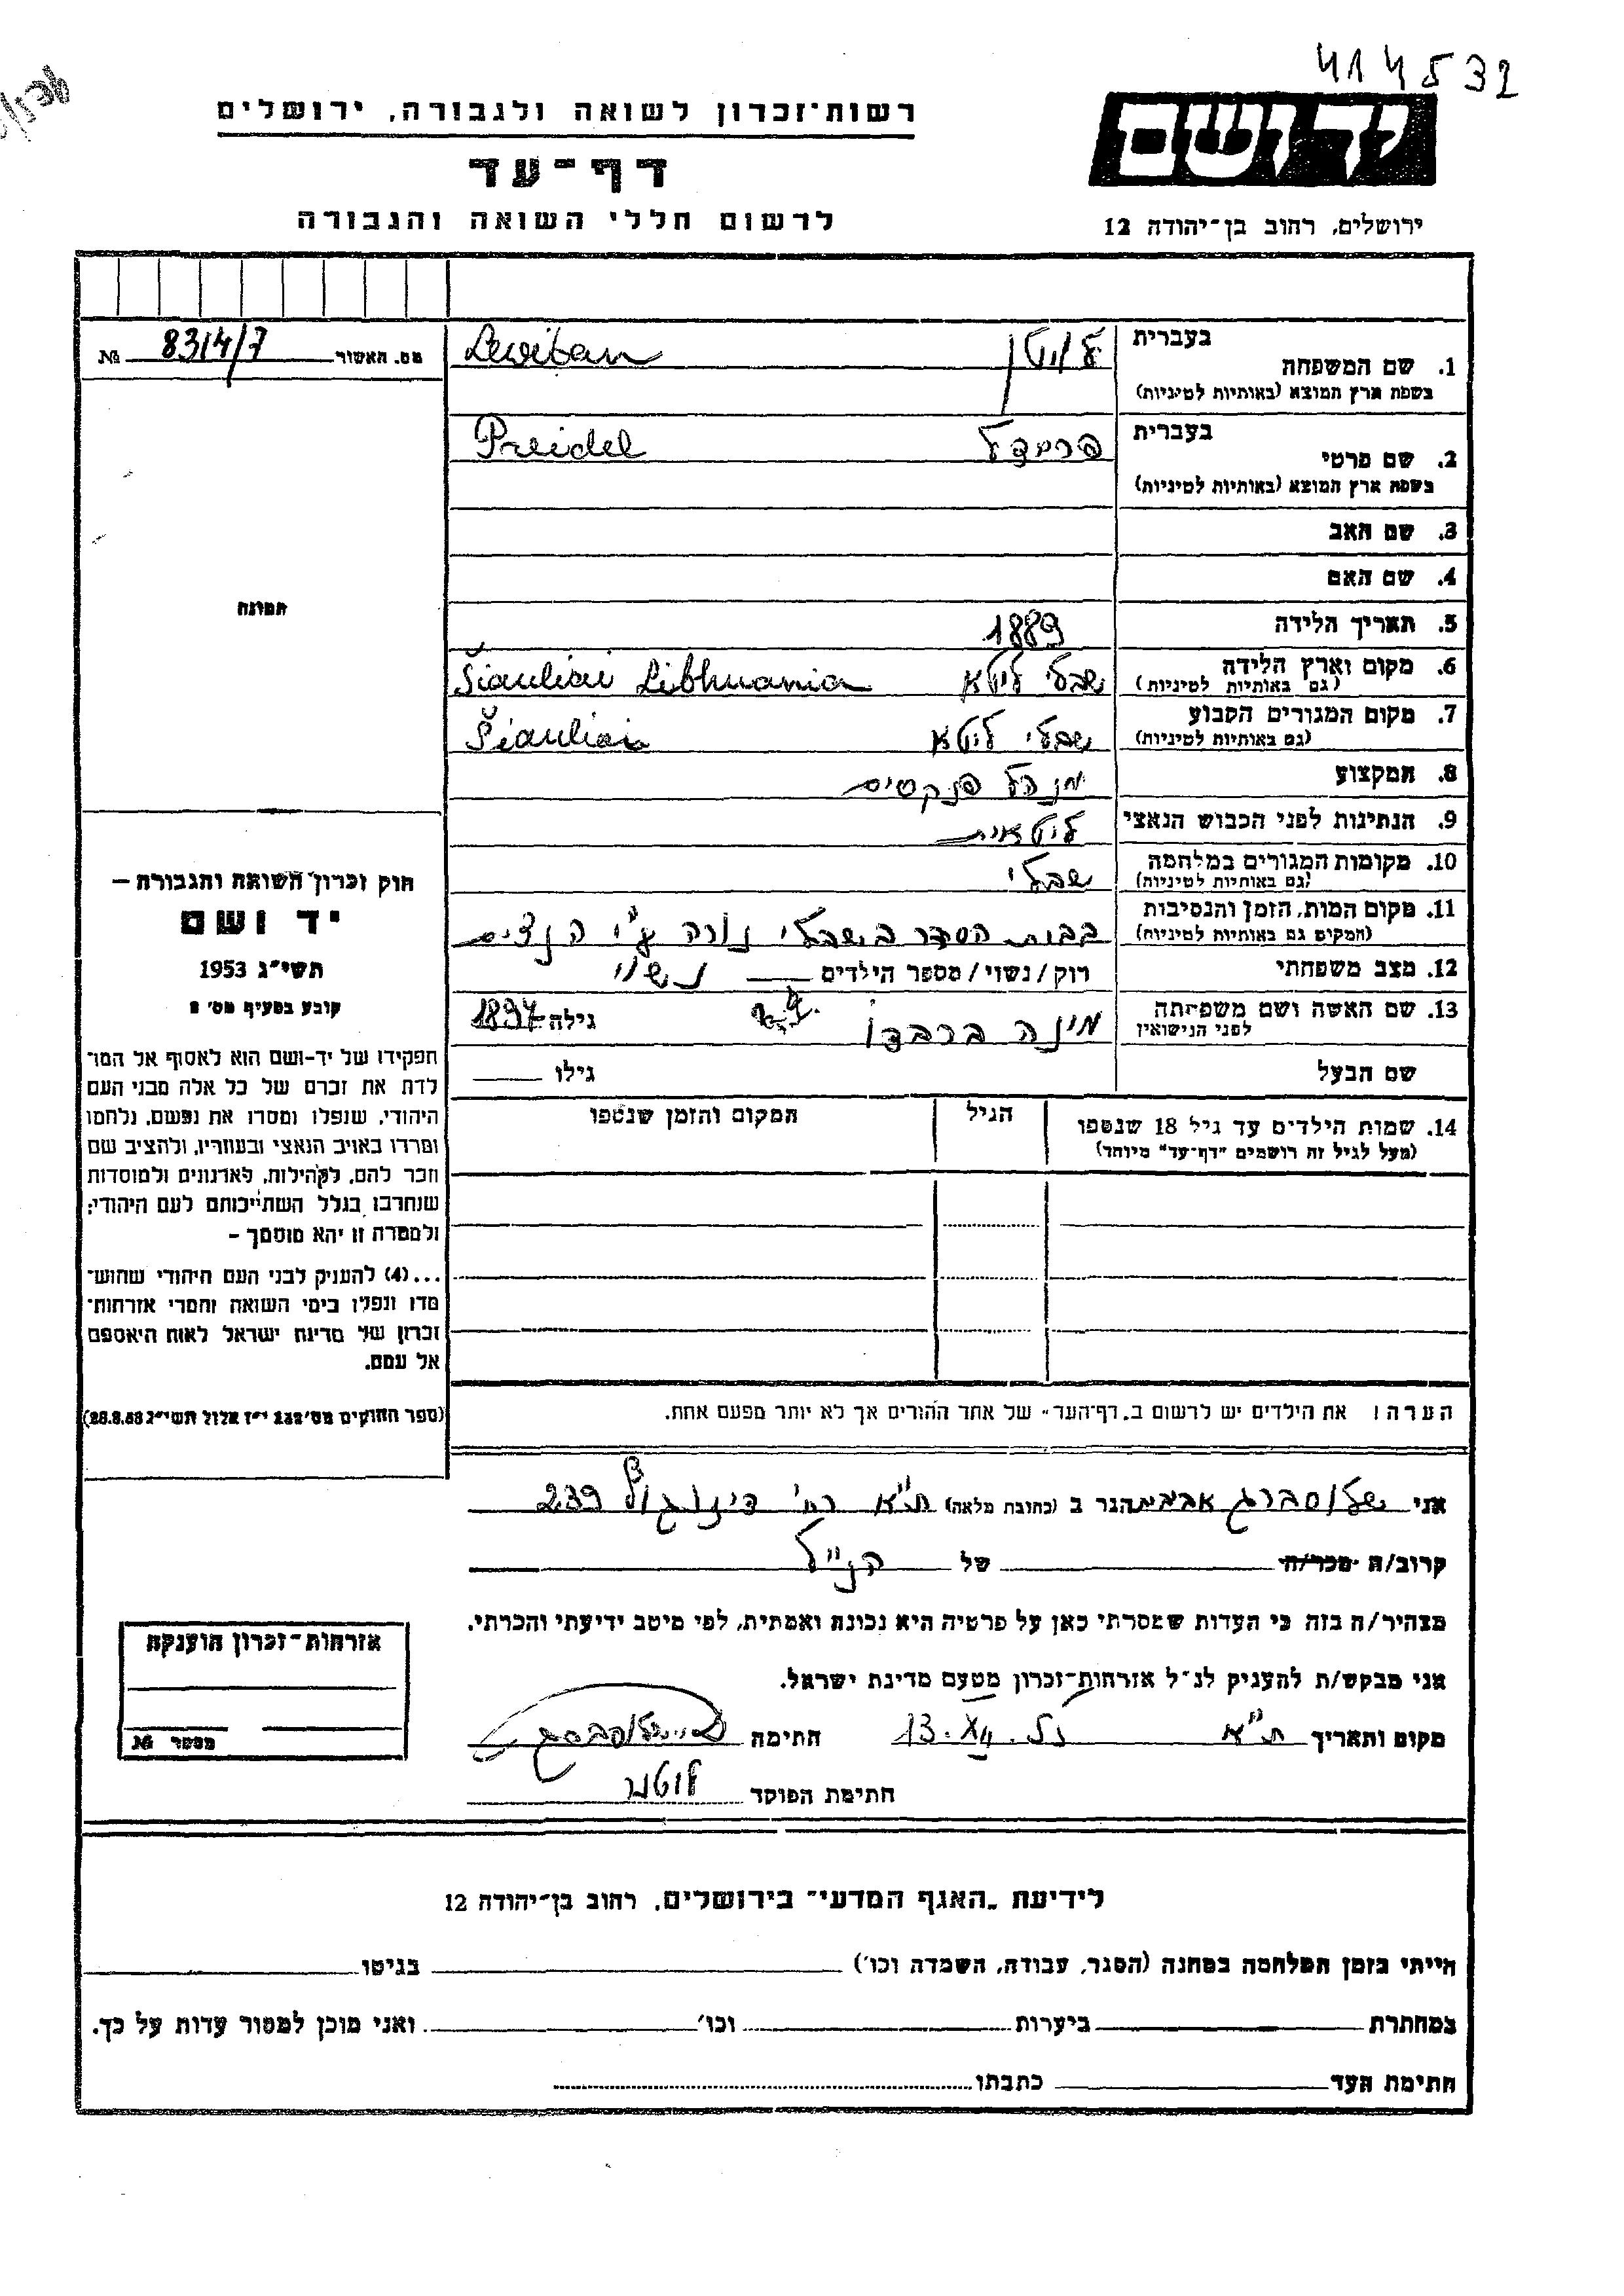 414532
רשות־זכרון לשואה ולגבורה, ירושלים
דף־עד
לרשום חללי השואה והגבורה
יד ושם
ירושלים, רחוב בן־יהודה 12
מס. האשור 8314/7 №
בעברית
1. שם המשפחה
בשפת ארץ המוצא (באותיות לטיניות)
לויטן Levitan
בעברית
2. שם פרטי
בשפת ארץ המוצא (באותיות לטיניות)
פריידל Preidel
3. שם האב
4. שם האם
5. תאריך הלידה 1889
6. מקום וארץ הלידה
(גם באותיות לטיניות)
שבלי ליטא Šiauliai Lithuania
7. מקום המגורים הקבוע
(גם באותיות לטיניות)
שבלי ליטא Šiauliai
8. המקצוע מנהל פנקסים
9. הנתינות לפני הכבוש הנאצי ליטאית
10. מקומות המגורים במלחמה
(גם באותיות לטיניות)
שבלי
11. מקום המות, הזמן והנסיבות
(המקום גם באותיות לטיניות)
בבות הסהר בשבלי נורה ע"י הנצים
12. מצב משפחתי רוק/נשוי/מספר הילדים נשוי
13. שם האשה ושם משפחתה
לפני הנישואין
מינה גילה 1897
שם הבעל גילו
14. שמות הילדים עד גיל 18 שנספו
(מעל לגיל זה רושמים "דף־עד" מיוחד)
הגיל
המקום והזמן שנספו
הערה: את הילדים יש לרשום ב„דף־העד" של אחד ההורים אך לא יותר מפעם אחת.
תמונה
חוק זכרון השואה והגבורה –
יד ושם
תשי"ג 1953
קובע בסעיף מס' 2
תפקידו של יד-ושם הוא לאסוף אל המו־
לדת את זכרם של כל אלה מבני העם
היהודי, שנפלו ומסרו את נפשם, נלחמו
ומרדו באויב הנאצי ובעוזריו, ולהציב שם
וזכר להם, לקהילות, לארגונים ולמוסדות
שנחרבו בגלל השתייכותם לעם היהודי;
ולמטרה זו יהא מוסמך –
...(4) להעניק לבני העם היהודי שהוש־
מדו ונפלו בימי השואה והמרי אזרחות־
זכרון של מדינת ישראל לאות היאספם
אל עמם.
(ספר החוקים מס' 132 י"ז אלול תשי"ג 28.8.53)
אני שלוסברג הגר ב (כתובת מלאה) ת"א רח' דיזנגוף 239
קרוב/ה מכר/ה של הנ"ל
מצהיר/ה בזה כי העדות שמסרתי כאן על פרטיה היא נכונה ואמתית, לפי מיטב ידיעתי והכרתי.
אני מבקש/ת להעניק לנ"ל אזרחות־זכרון מטעם מדינת ישראל.
מקום ותאריך ת"א 13.XII חתימה
חתימת הפוקד
אזרחות־זכרון הוענקה
מספר №
לידיעת „האגף המדעי" בירושלים, רחוב בן־יהודה 12
הייתי בזמן המלחמה במחנה (הסגר, עבודה, השמדה וכו') בגיטו
במחתרת ביערות וכו' ואני מוכן למסור עדות על כך.
חתימת העד כתבתו